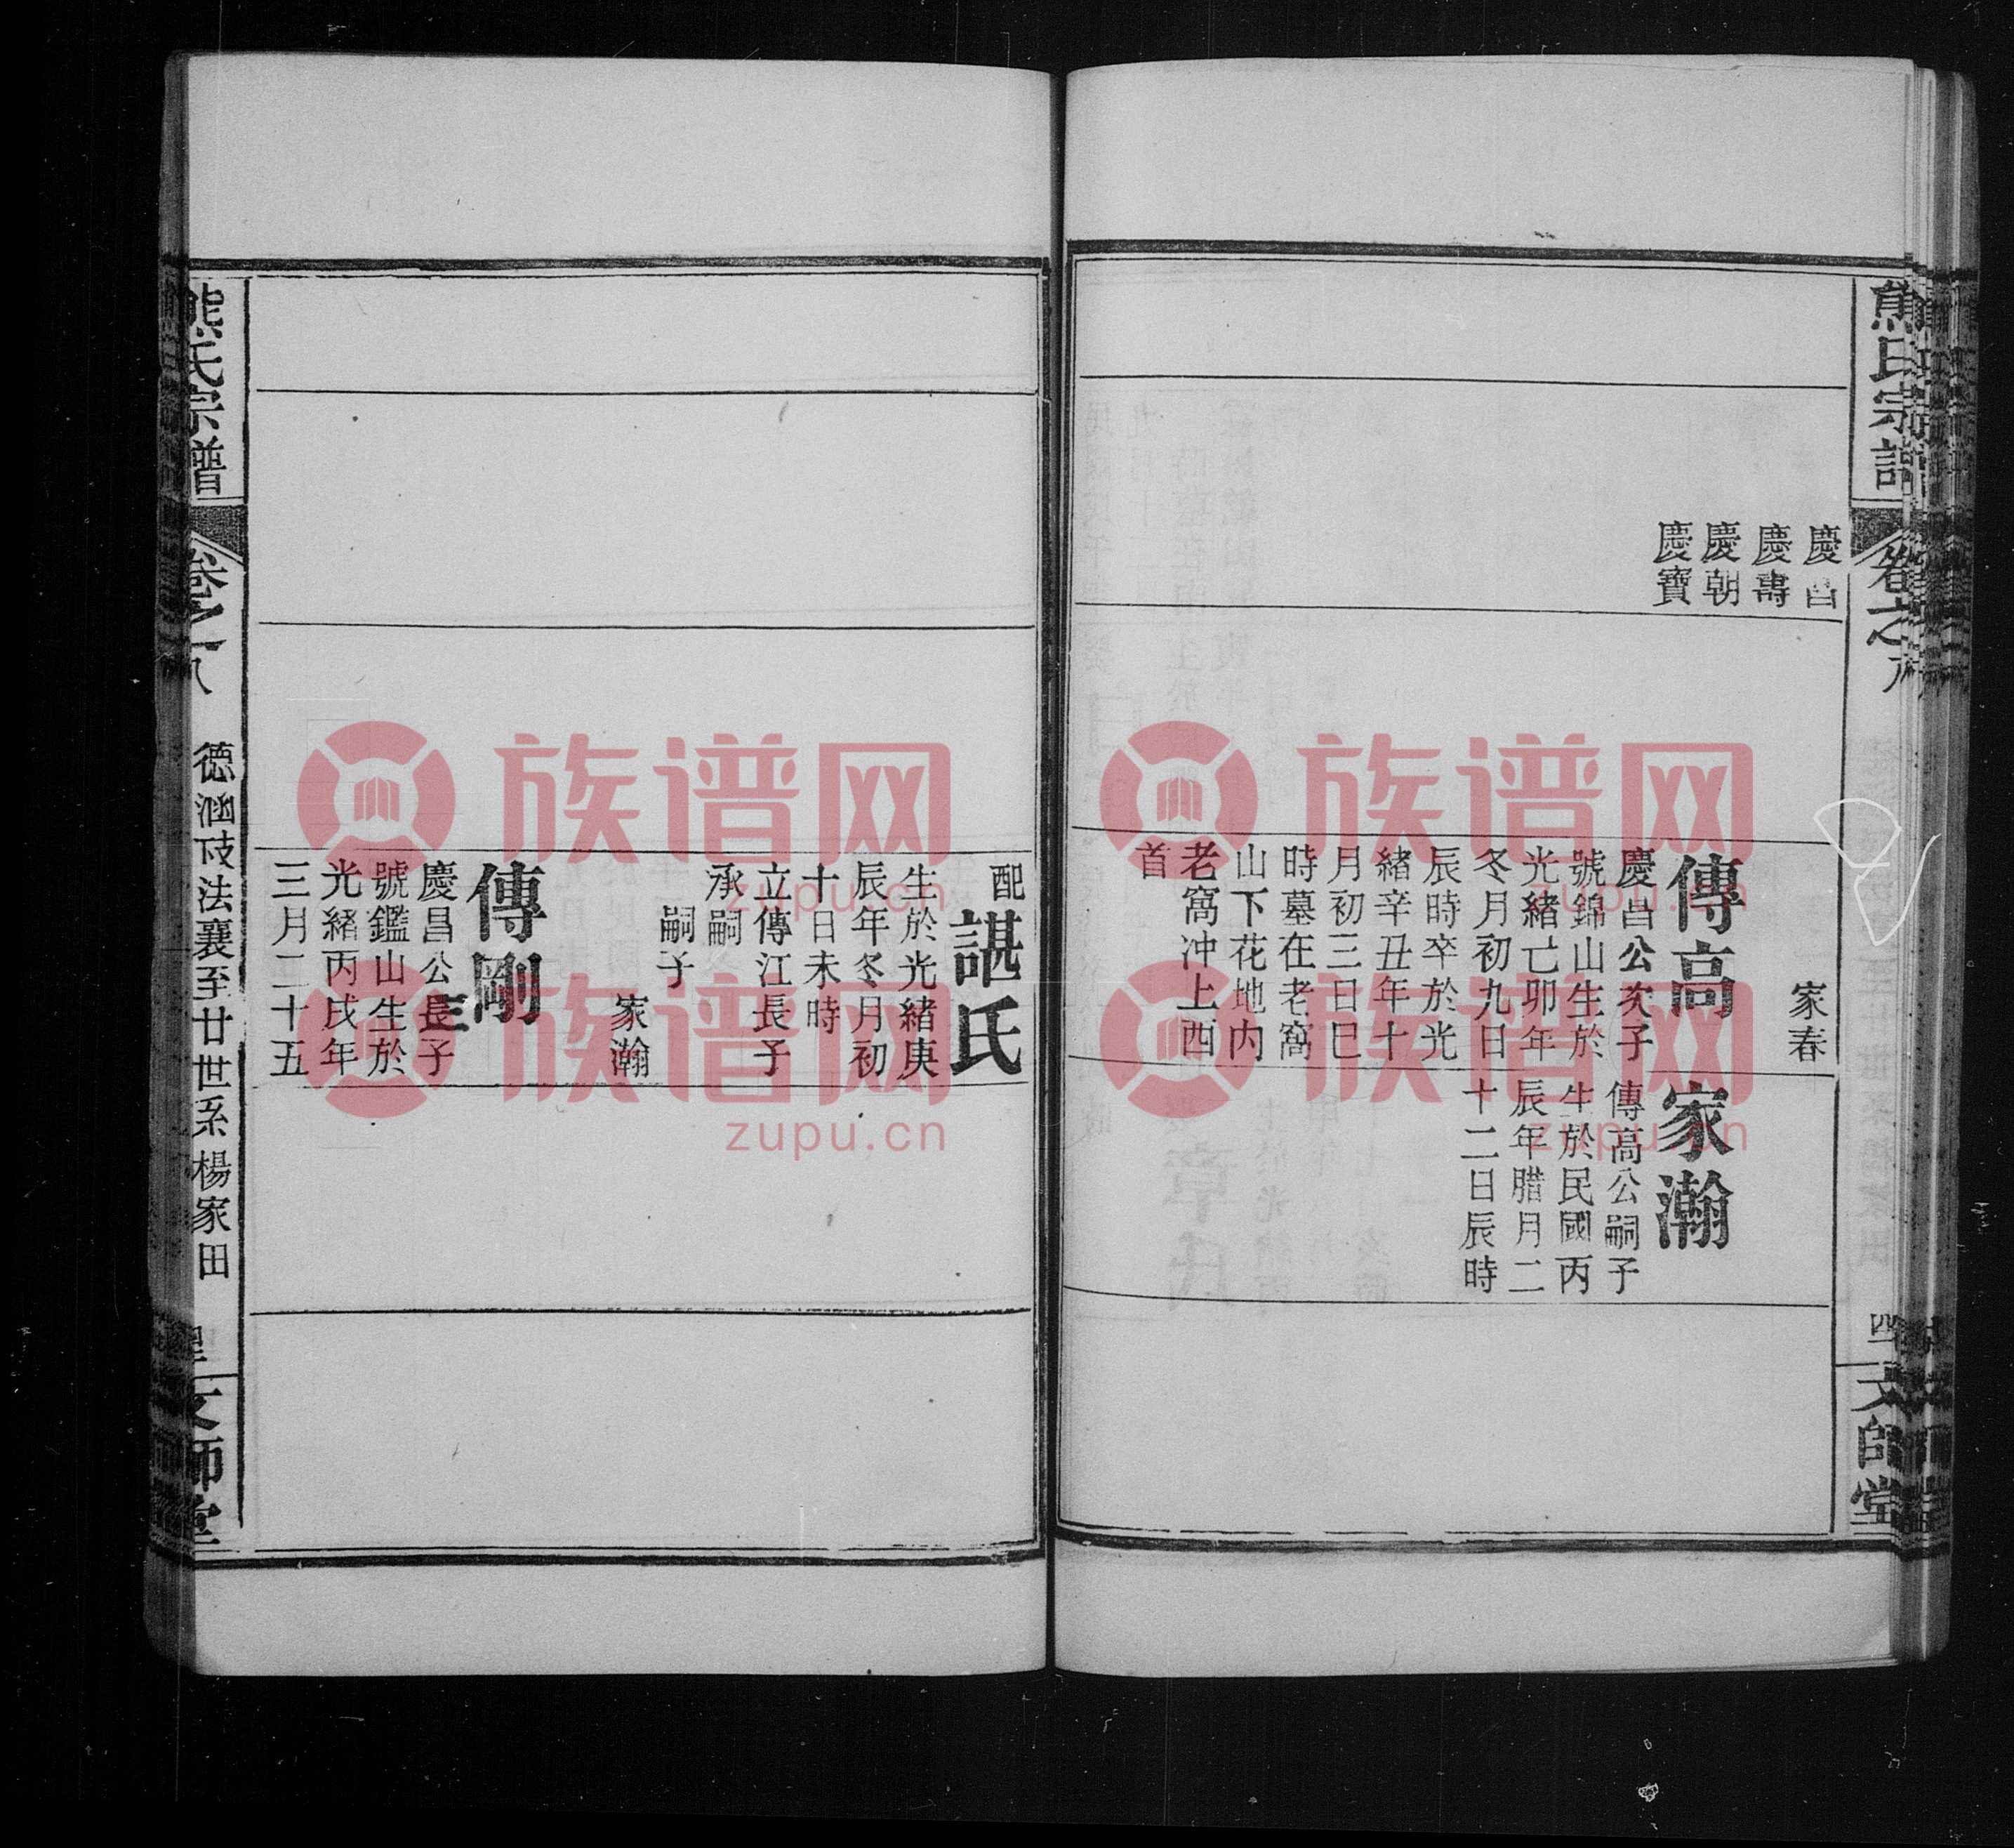 熊氏宗譜
卷之八
四
文師堂
慶昌
慶壽
慶朝
慶寶
家春
傳高
慶昌公次子
號錦山生於
光緒亡卯年
冬月初九日
辰時卒於光
緒辛丑年十
月初三日巳
時墓在老窩
山下花地内
老窩冲上西
首
家瀚
傳高公嗣子
生於民國丙
辰年腊月二
十二日辰時
配諶氏
生於光緒庚
辰年冬月初
十日未時
立傳江長子
承嗣
嗣子
家瀚
傳剛
慶昌公長子
號鑑山生於
光緒丙戌年
三月二十五
熊氏宗譜
卷之八
德涵攱法襄至廿世系楊家田
文師堂
族谱网
zupu.cn
族谱网
zupu.cn
族谱网
zupu.cn
族谱网
zupu.cn